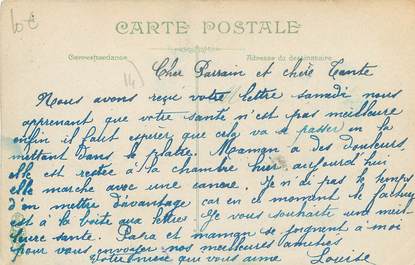 10€
CARTE POSTALE
Correspondance
Adresse du destinataire
14)
Cher Parrain et chère Tante
Nous avons reçu votre lettre samedi nous
apprenant que votre santé n'est pas meilleure
enfin il faut espérer que cela va se passer en la
mettant dans le plâtre. Maman a des douleurs
elle est resté à la chambre hier aujourd'hui
elle marche avec une canne. Je n'ai pas le temps
d'en mettre d'avantage car en ce moment le facteur
est à la boite aux lettres. Je vous souhaite une meil-
leure santé. Papa et maman se joignent à moi
pour vous envoyer nos meilleures amitiés
Votre nièce qui vous aime Louise